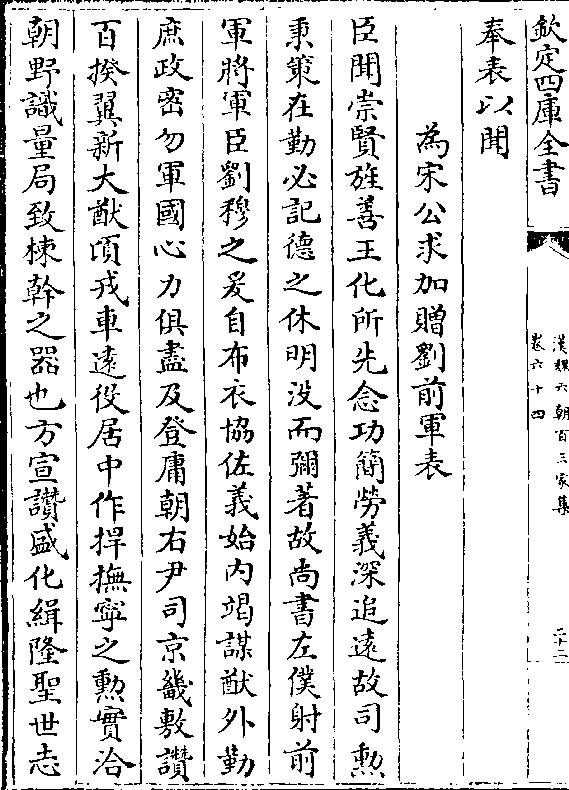 欽定四庫全書
漢魏六朝百三家集
卷六十四
二十二
奉表以聞
為宋公求加贈劉前軍表
臣聞崇賢旌善王化所先念功簡勞義深追遠故司勲
秉策在勤必記德之休明沒而彌著故尚書左僕射前
軍將軍臣劉穆之爰自布衣協佐義始内竭謀猷外勤
庶政密勿軍國心力俱盡及登庸朝右尹司京畿敷讚
百揆翼新大猷頃戎車遠役居中作捍撫寧之勲實洽
朝野識量局致棟幹之器也方宣讚盛化緝隆聖世志